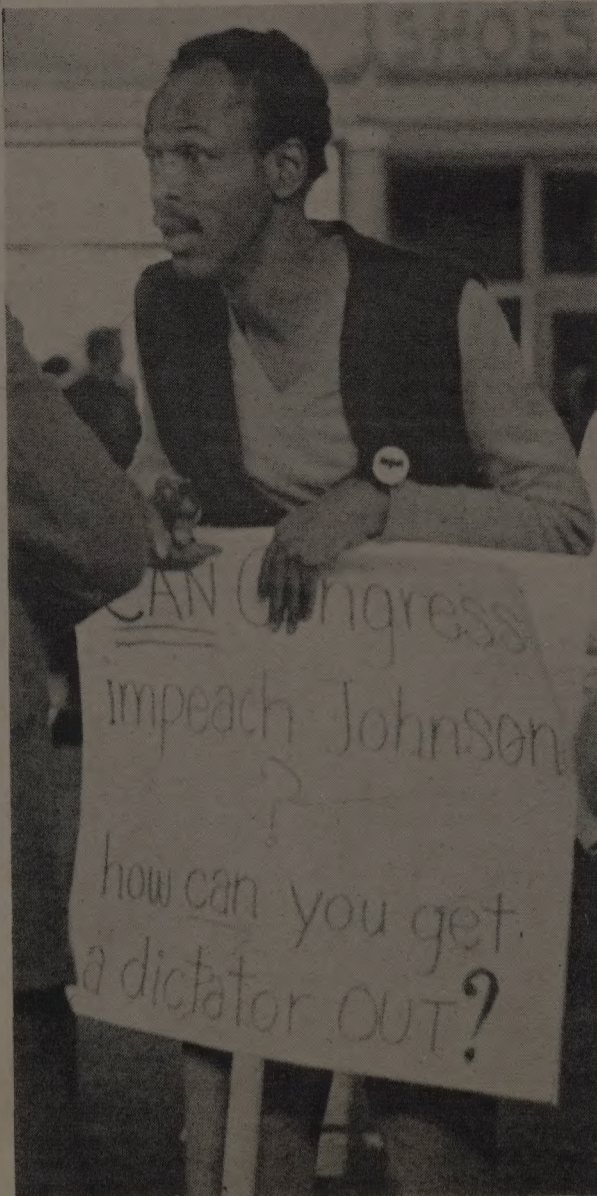 SHOES
CAN Congress
impeach Johnson
?
how can you get
a dictator OUT?